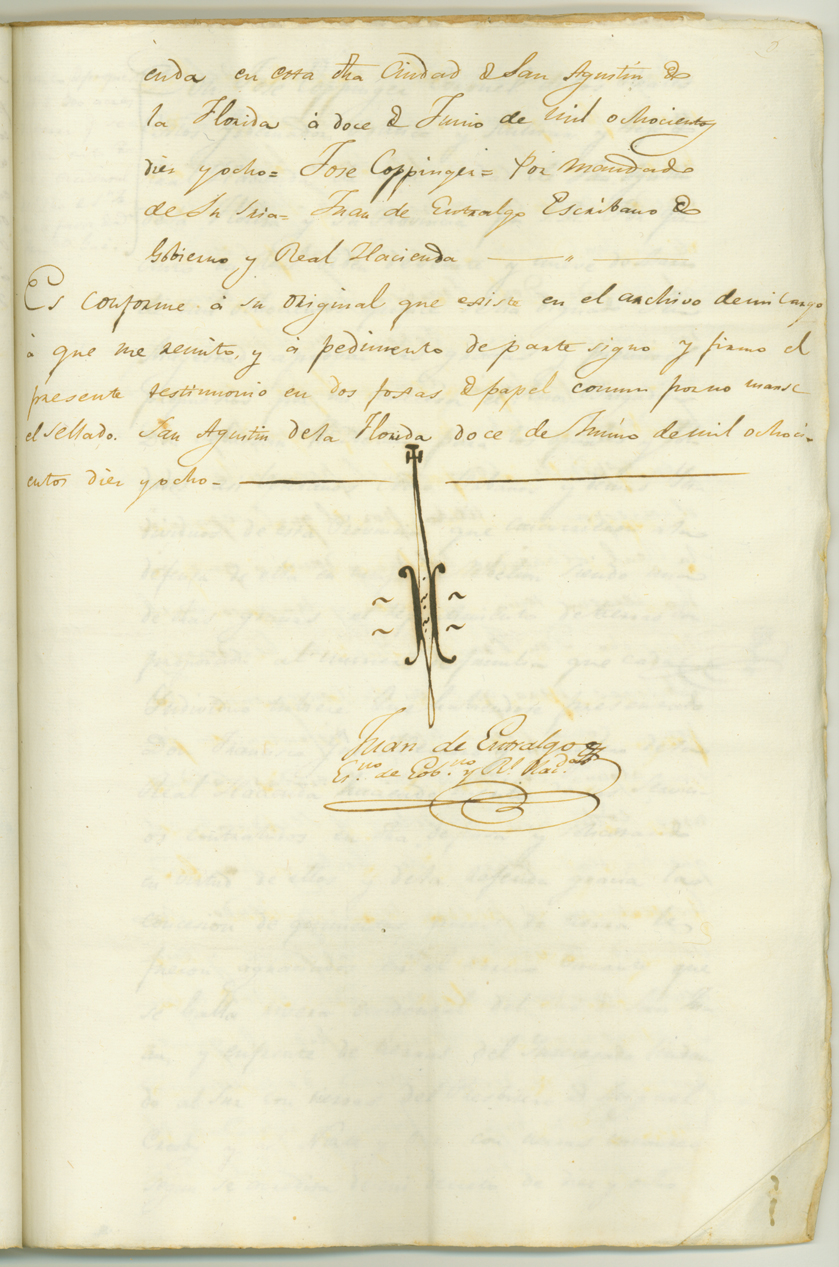 enda en esta dha Ciudad de San Agustin de
la Florida à doce de Junio de mil ochocientos
diez y ocho= Jose Coppinger= Por mandado
de Su Sria= Juan de Entralgo Escribano de
Gobierno y Real Hacienda
Es conforme à su original que existe en el archivo de mi cargo
à que me remito, y à pedimento de parte signo y firmo el
presente testimonio en dos foxas de papel comun por no usarse
el sellado. San Agustin de la Florida doce de Junio de mil ochoci-
entos diez y ocho-
Juan de Entralgo
Es.no de Gob.no y Rl. Haz.da